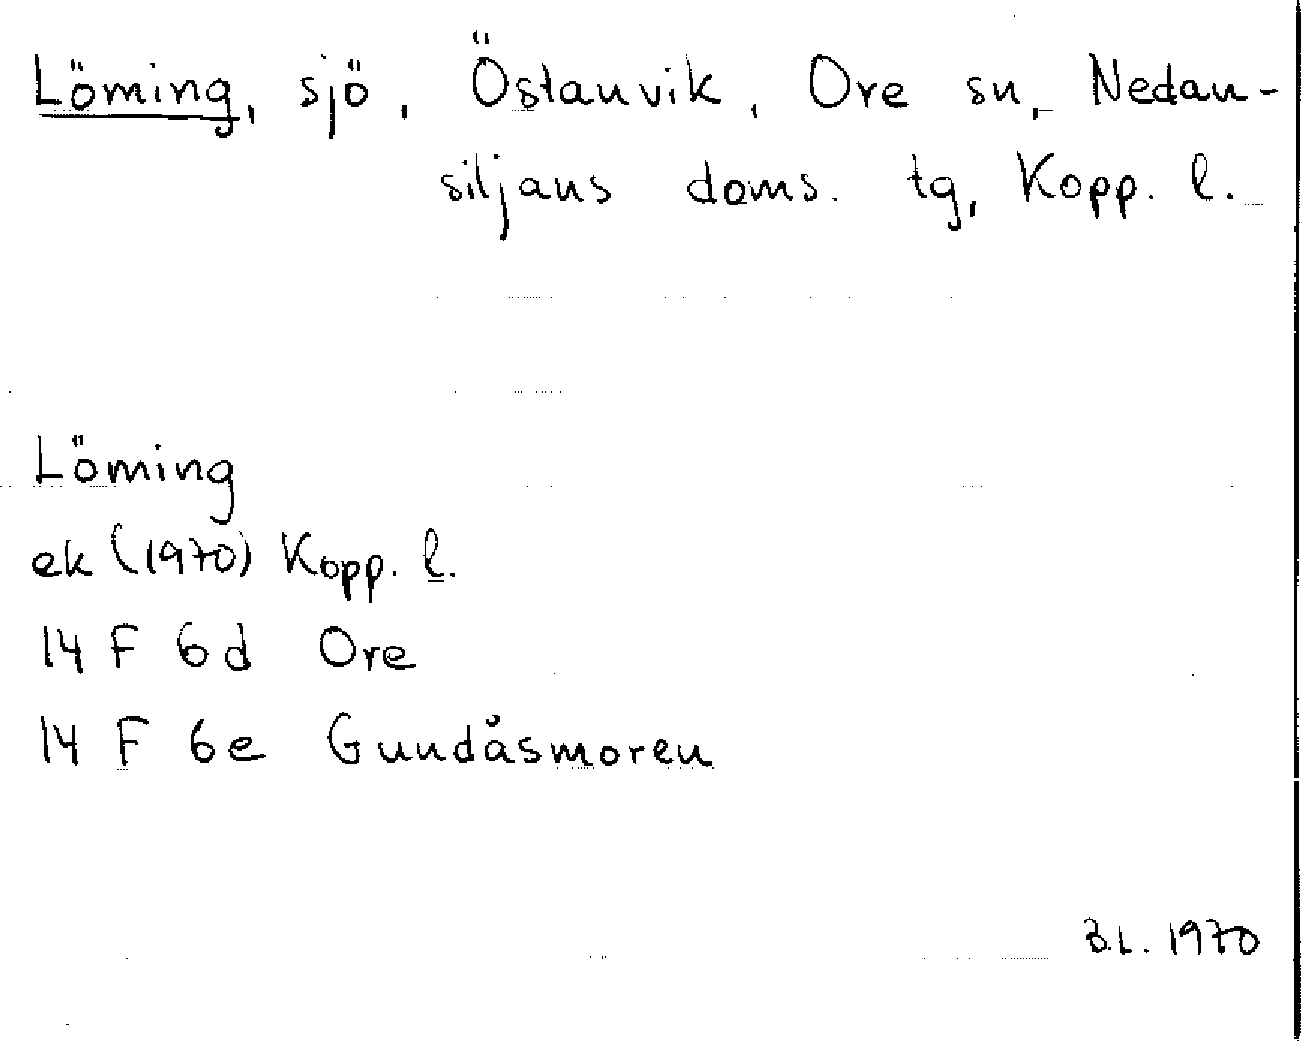 Löming, sjö, Östanvik, Ore sn, Nedan-
siljans doms. tg, Kopp. l.
Löming
ek (1970) Kopp. l.
14 F 6d Ore
14 F 6e Gundåsmoren
B.L. 1970